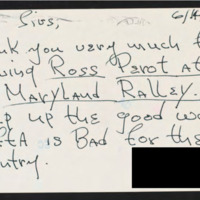 Sirs,  6/
nk you very much
wing Ross Perot at
Maryland Ralley.
p up the good wo
is Bad for the
ntry.